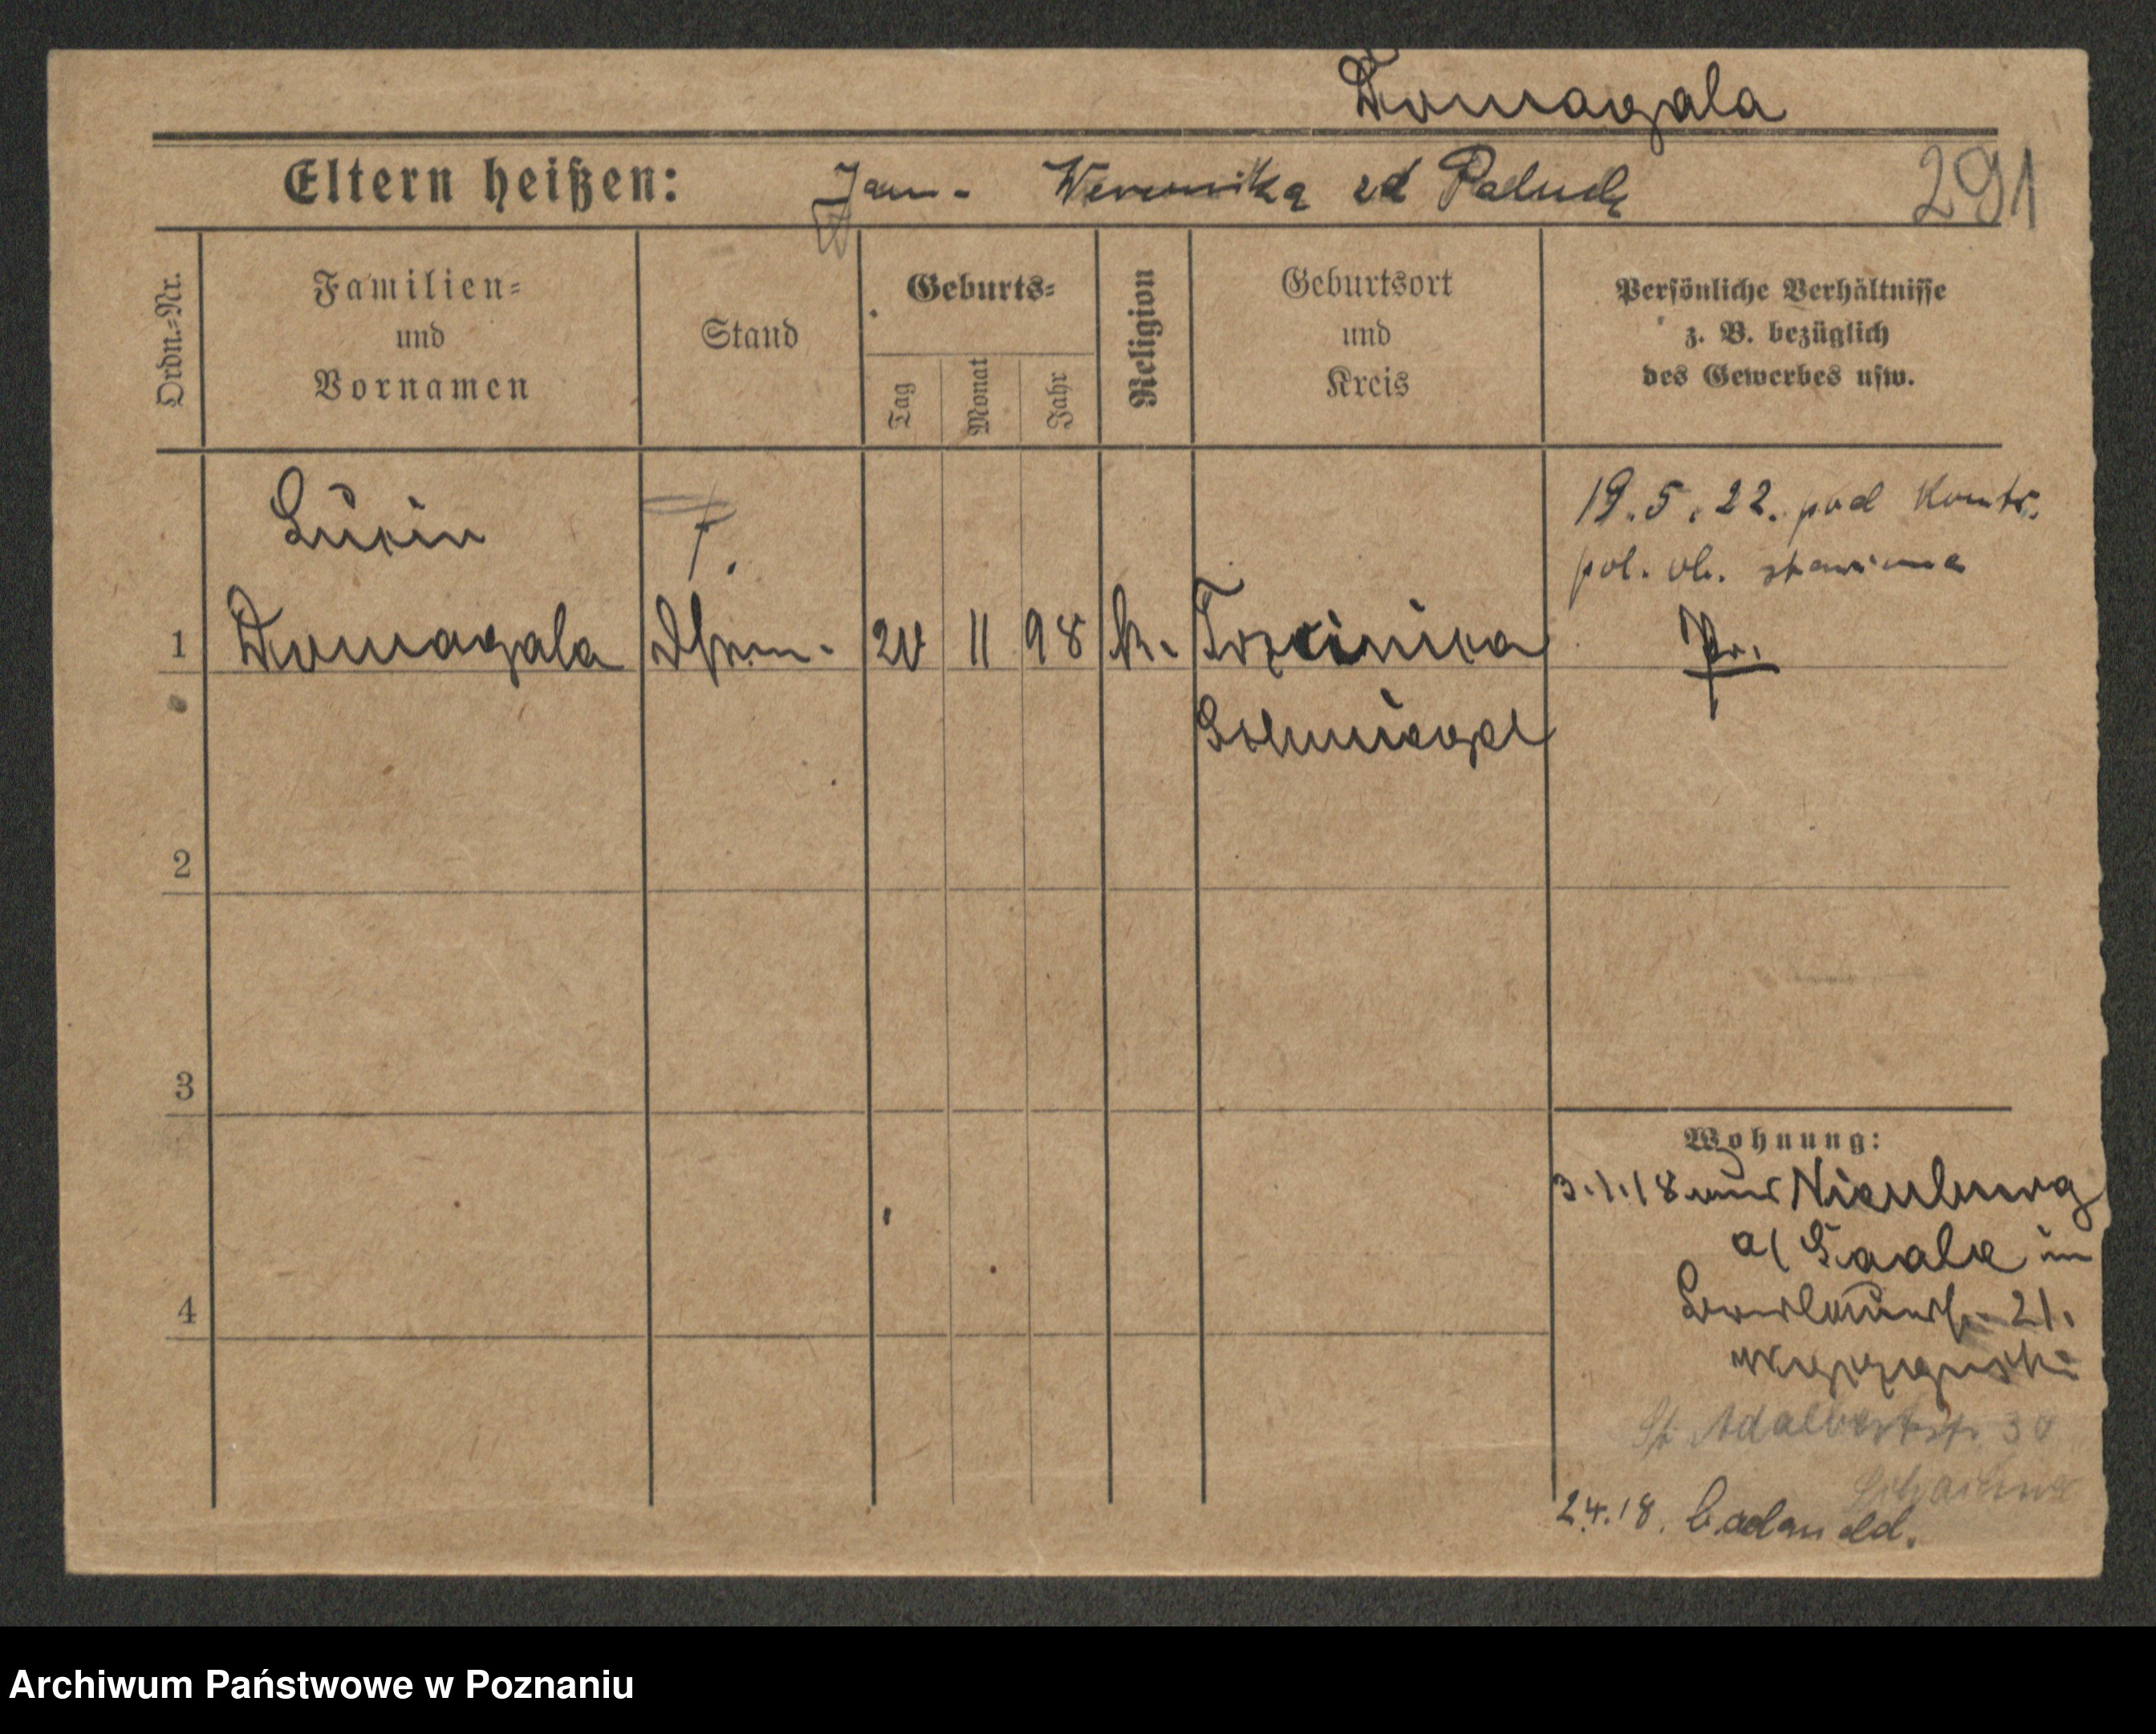 Domagala
Eltern heißen: Jan - Weronika zd Paluch
291
Ordn.-Nr.
Familien-
und
Vornamen
Stand
Geburts-
Tag
Monat
Jahr
Religion
Geburtsort
und
Kreis
Persönliche Verhältnisse
z. B. bezüglich
des Gewerbes usw.
19.5.22. pod Kontr.
pol. ob.
1 Domagala 20 11 98 k.
2
3
4
Wohnung:
3.1.18 Nienburg
a/ Saale in
21.
St Adalbertstr. 30
2.4.18.
Archiwum Państwowe w Poznaniu